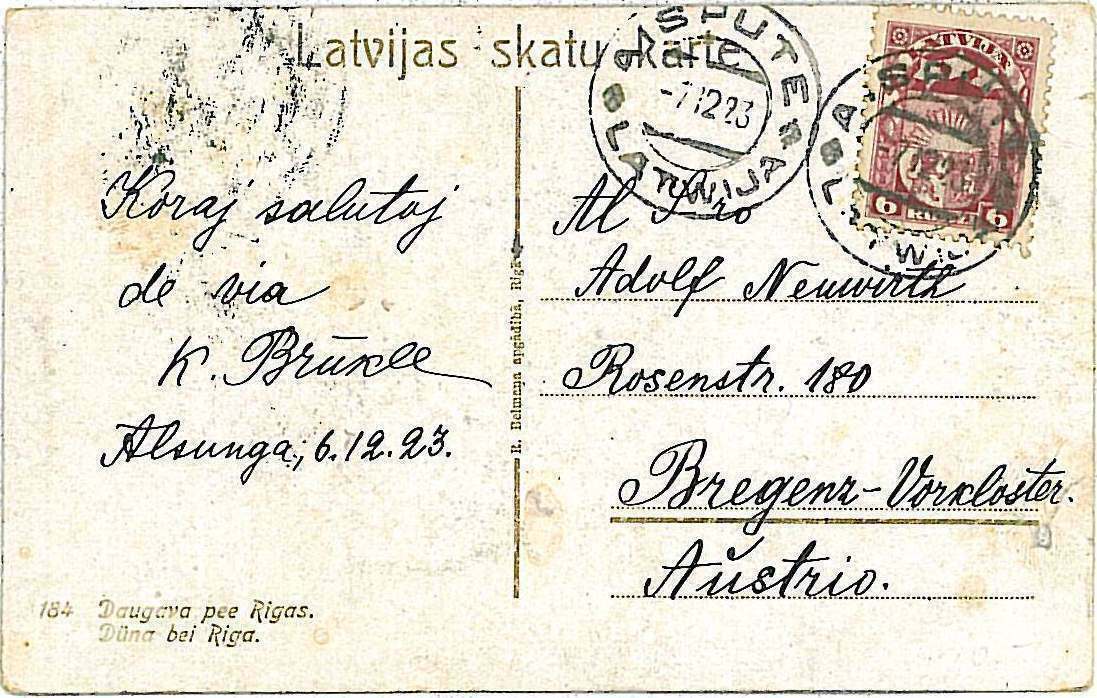 Latvijas skatu karte
AISPUTE
-7.12.23
LATWIJA
LATVIJA
6 6
Koraj salutoj
de via
K. Brūkle
Alsunga, 6.12.23.
R. Delmaņa apgādibā, Rigā
Al Sro
Adolf Neuwirth
Rosenstr. 180
Bregenz-Vorkloster.
Aŭstrio.
184 Daugava pee Rigas.
Düna bei Riga.